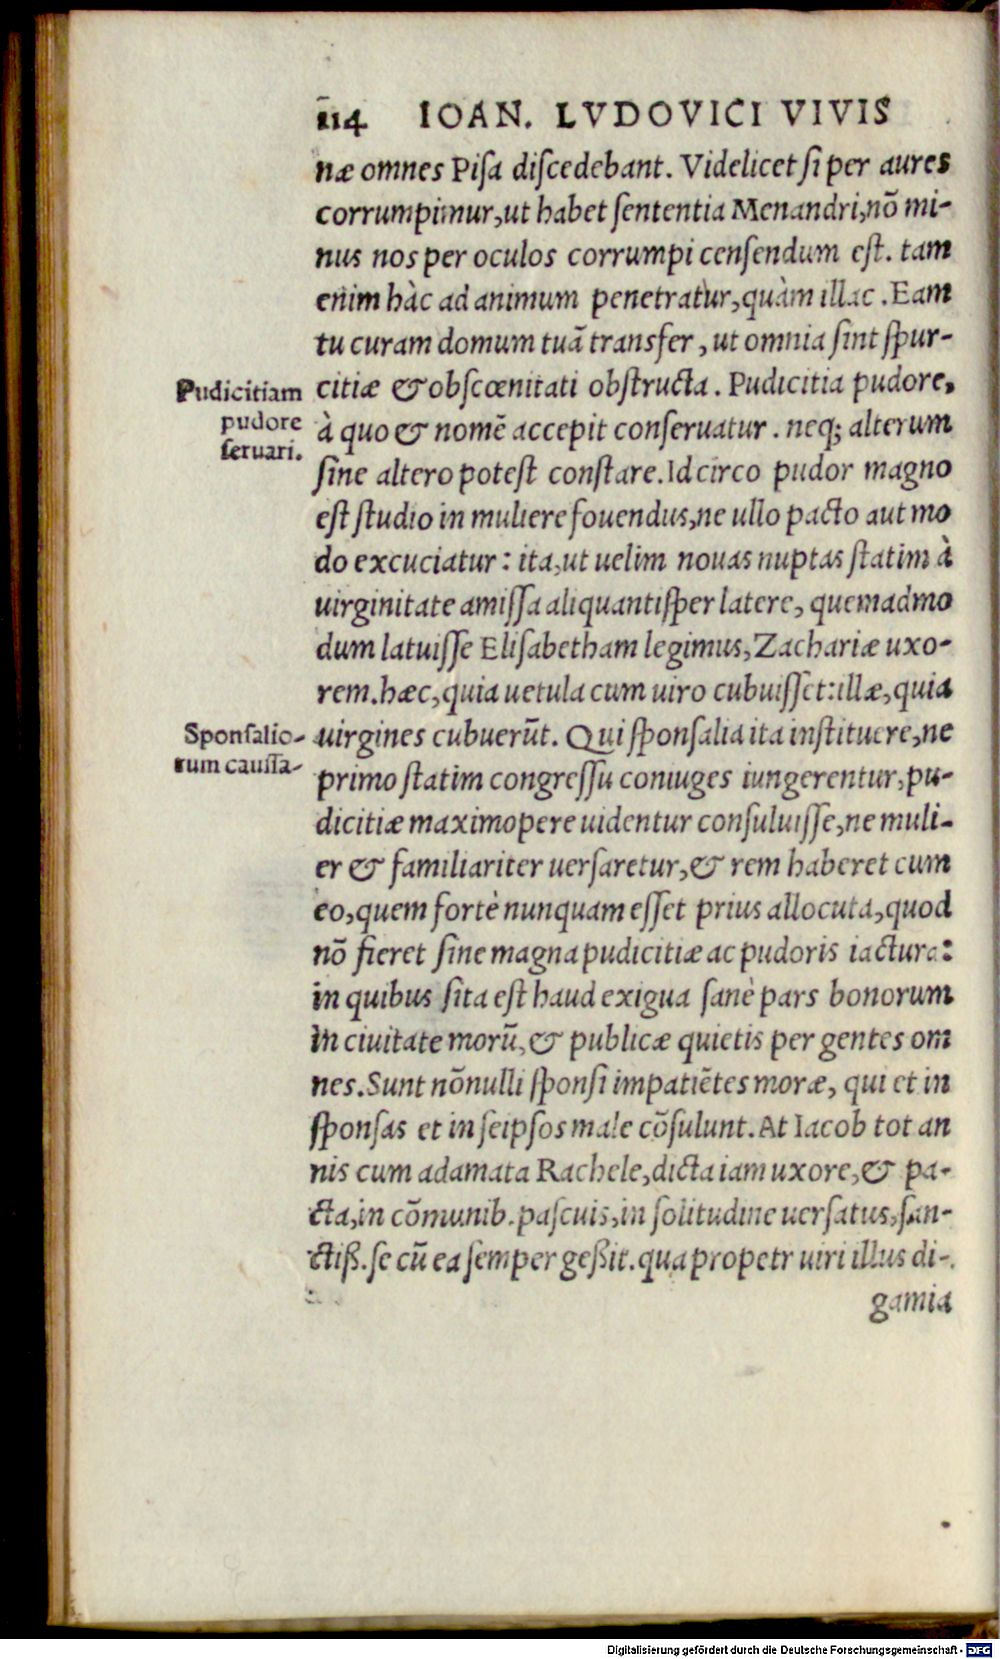 114 IOAN. LVDOVICI VIVIS
næ omnes Piſa diſcedebant. Videlicet ſi per aures
corrumpimur, ut habet ſententia Menandri, nō mi-
nus nos per oculos corrumpi cenſendum eſt. tam
enim hàc ad animum penetratur, quàm illac. Eam
tu curam domum tuā transfer, ut omnia ſint ſpur-
citiæ & obſcœnitati obſtructa. Pudicitia pudore,
Pudicitiam
pudore
ſeruari.
à quo & nomē accepit conſeruatur. neq; alterum
ſine altero poteſt conſtare. Idcirco pudor magno
eſt ſtudio in muliere fouendus, ne ullo pacto aut mo
do excuciatur: ita, ut uelim nouas nuptas ſtatim à
uirginitate amiſſa aliquantiſper latere, quemadmo
dum latuiſſe Eliſabetham legimus, Zachariæ uxo-
rem. hæc, quia uetula cum uiro cubuiſſet: illæ, quia
Sponſalio-
rum cauſſa-
uirgines cubuerūt. Qui ſponſalia ita inſtituere, ne
primo ſtatim congreſſu coniuges iungerentur, pu-
dicitiæ maximopere uidentur conſuluiſſe, ne muli-
er & familiariter uerſaretur, & rem haberet cum
eo, quem fortè nunquam eſſet prius allocuta, quod
nō fieret ſine magna pudicitiæ ac pudoris iactura:
in quibus ſita eſt haud exigua ſanè pars bonorum
in ciuitate morū, & publicæ quietis per gentes om
nes. Sunt nōnulli ſponſi impatiētes moræ, qui et in
ſponſas et in ſeipſos male cōſulunt. At Iacob tot an
nis cum adamata Rachele, dicta iam uxore, & pa-
cta, in cōmunib. paſcuis, in ſolitudine uerſatus, ſan-
ctiß. ſe cū ea ſemper geßit. qua propetr uiri illius di-
gamia
Digitalisierung gefördert durch die Deutsche Forschungsgemeinschaft - DFG